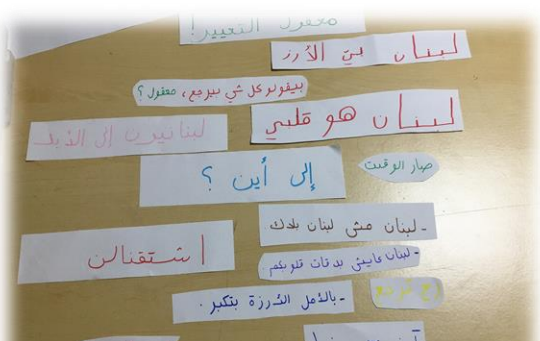 معقول التغيير!
لبنان بيّ الأرز
بيقولو كل شي بيرجع، معقول؟
لبنان هو قلبي
لبنانيون إلى الأبد
صار الوقت
إلى أين ؟
- لبنان مش لبنان بلاك
اشتقنالن
- لبنان عايش بدقات قلوبكم.
رح نرجع
- بالأمل الأرزة بتكبر.